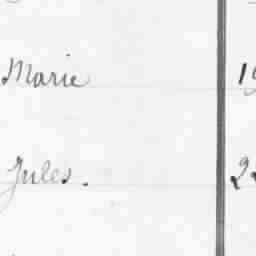 Marie
Jules.